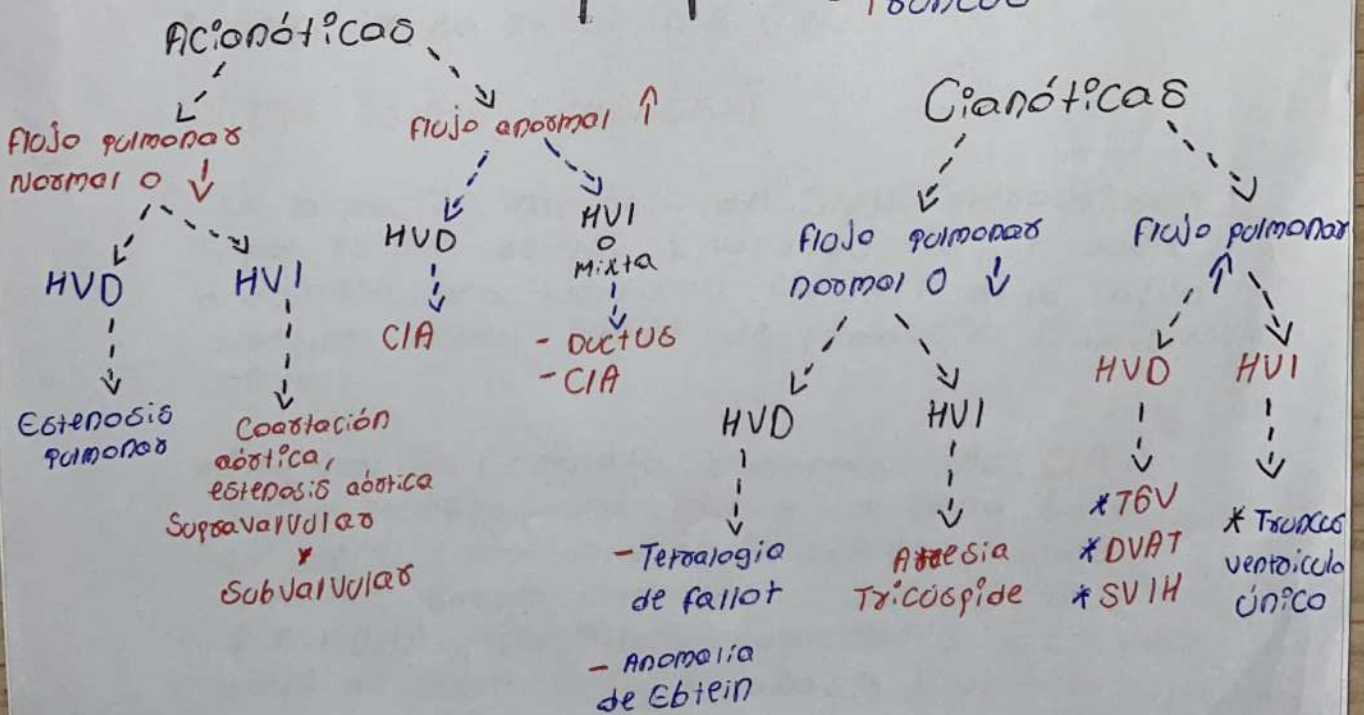 - Truncus
Acionóticas
Flujo pulmonar
Normal o ↓
HVD
Estenosis
pulmonar
HVI
Coartación
aórtica,
estenosis aórtica
Supravalvular
y
Subvalvular
flujo anormal ↑
HVD
CIA
HVI
o
Mixta
- Ductus
- CIA
Cianóticas
flujo pulmonar
normal o ↓
HVD
- Terralogia
de fallot
- Anomalia
de Ebtein
HVI
Atresia
Tricúspide
Flujo pulmonar
↑
HVD
* TGV
* DVAT
* SVIH
HVI
* Truncus
ventrículo
único